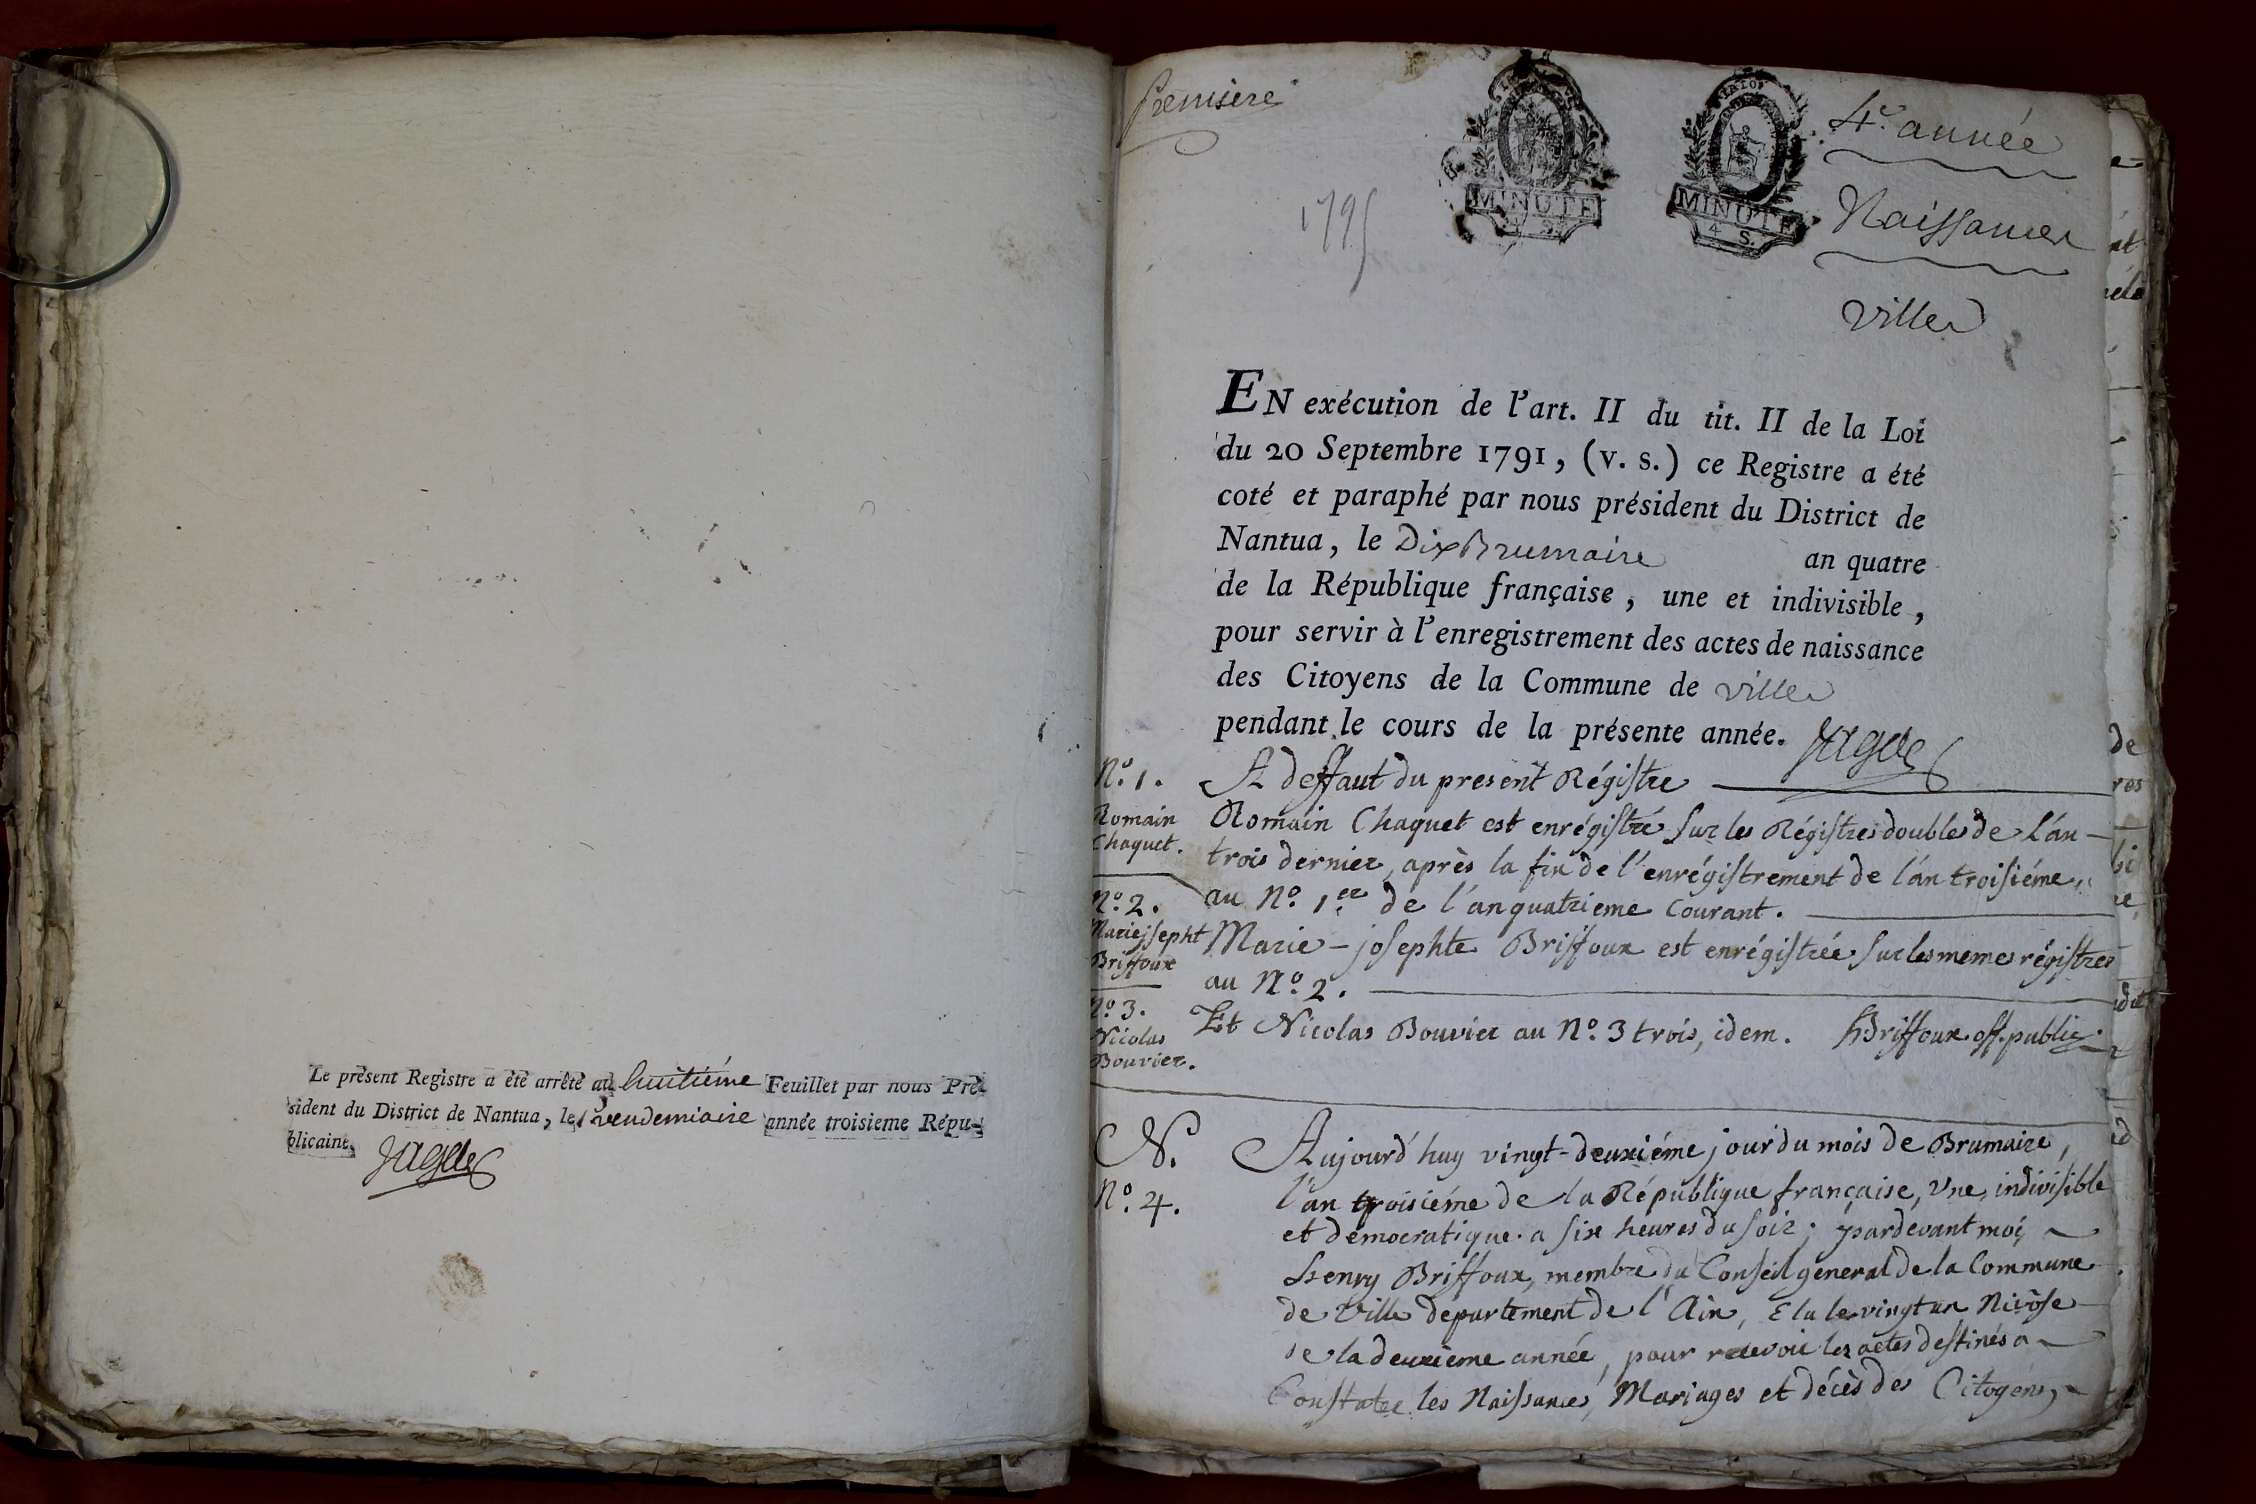 Le présent Registre a été arrêté au huitiéme Feuillet par nous Pré-
sident du District de Nantua, le 1 vendemiaire année troisieme Répu-
blicaine.
Jagot
Premiere
4e. année
Naissances
Ville
1795
MINUTE
4 S.
MINUTE
4 S.
EN exécution de l'art. II du tit. II de la Loi
du 20 Septembre 1791, (v. s.) ce Registre a été
coté et paraphé par nous président du District de
Nantua, le Dix Brumaire an quatre
de la République française, une et indivisible,
pour servir à l'enregistrement des actes de naissance
des Citoyens de la Commune de ville
pendant le cours de la présente année.
N.° 1.
Romain
Chaquet.
A deffaut du present Régistre
Romain Chaquet est enrégistré sur les Régistres doubles de L'an
trois dernier, après la fin de l'enrégistrement de l'an troisiéme,
au N.° 1.er de l'an quatrieme Courant.
N.° 2.
Marie jsepht
Briffoux
Marie-josephte Briffoux est enrégistrée sur les memes régistres
au N.° 2.
N.° 3.
Nicolas
Bouvier.
Et Nicolas Bouvier au N.° 3 trois, idem. hBriffoux off. public
N.
N.° 4.
Aujourd'huy vingt-deuxiéme jour du mois de Brumaire,
l'an troisiéme de la République française, Une, indivisible
et démocratique. a six heures du soir; pardevant moi,
henry Briffoux, membre du Conseil general de la Commune
de Ville departement de l'Ain, Elu le vingt un Nivôse
de la deuxieme année, pour recevoir les actes destinés a
Constater les Naissances, Mariages et décès des Citoyens,